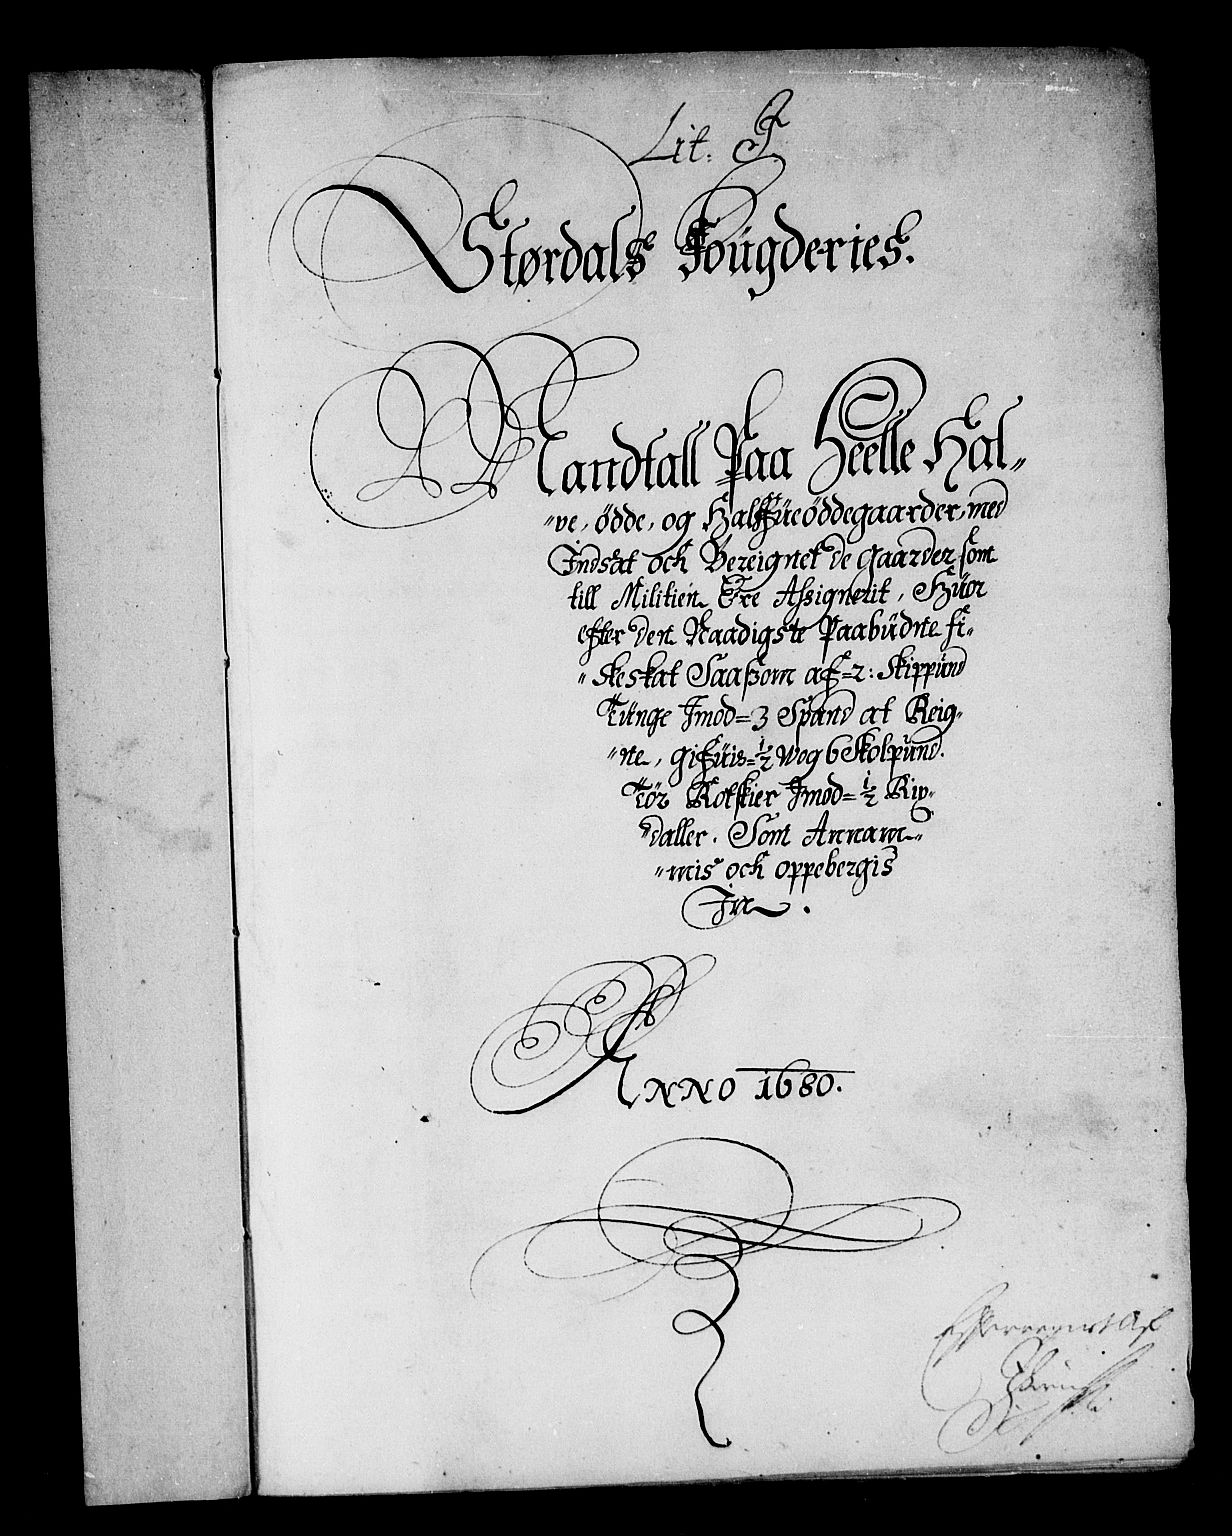 Lit. F.
Størdals Fougderies.
Mandtall Paa Heelle Hal„
„ve, ødde, og Halffüeøddegaarder, med
Indsat och Bereignet de Gaarder som
till Militien Ere Assignerit, Huor
efter den Naadigste Paabüdne fi„
„skeskat Saassom af=2: Skippünd
Tünge Imod=3 Spand at Reig„
„ne, gifüis=½ Wog 6 Skolpünd.
Tör Rotskier Imod=½ Rix„
daller. Som Annam„
„mis och oppebergis
Im.
ANNO 1680.
Efterreignet Af